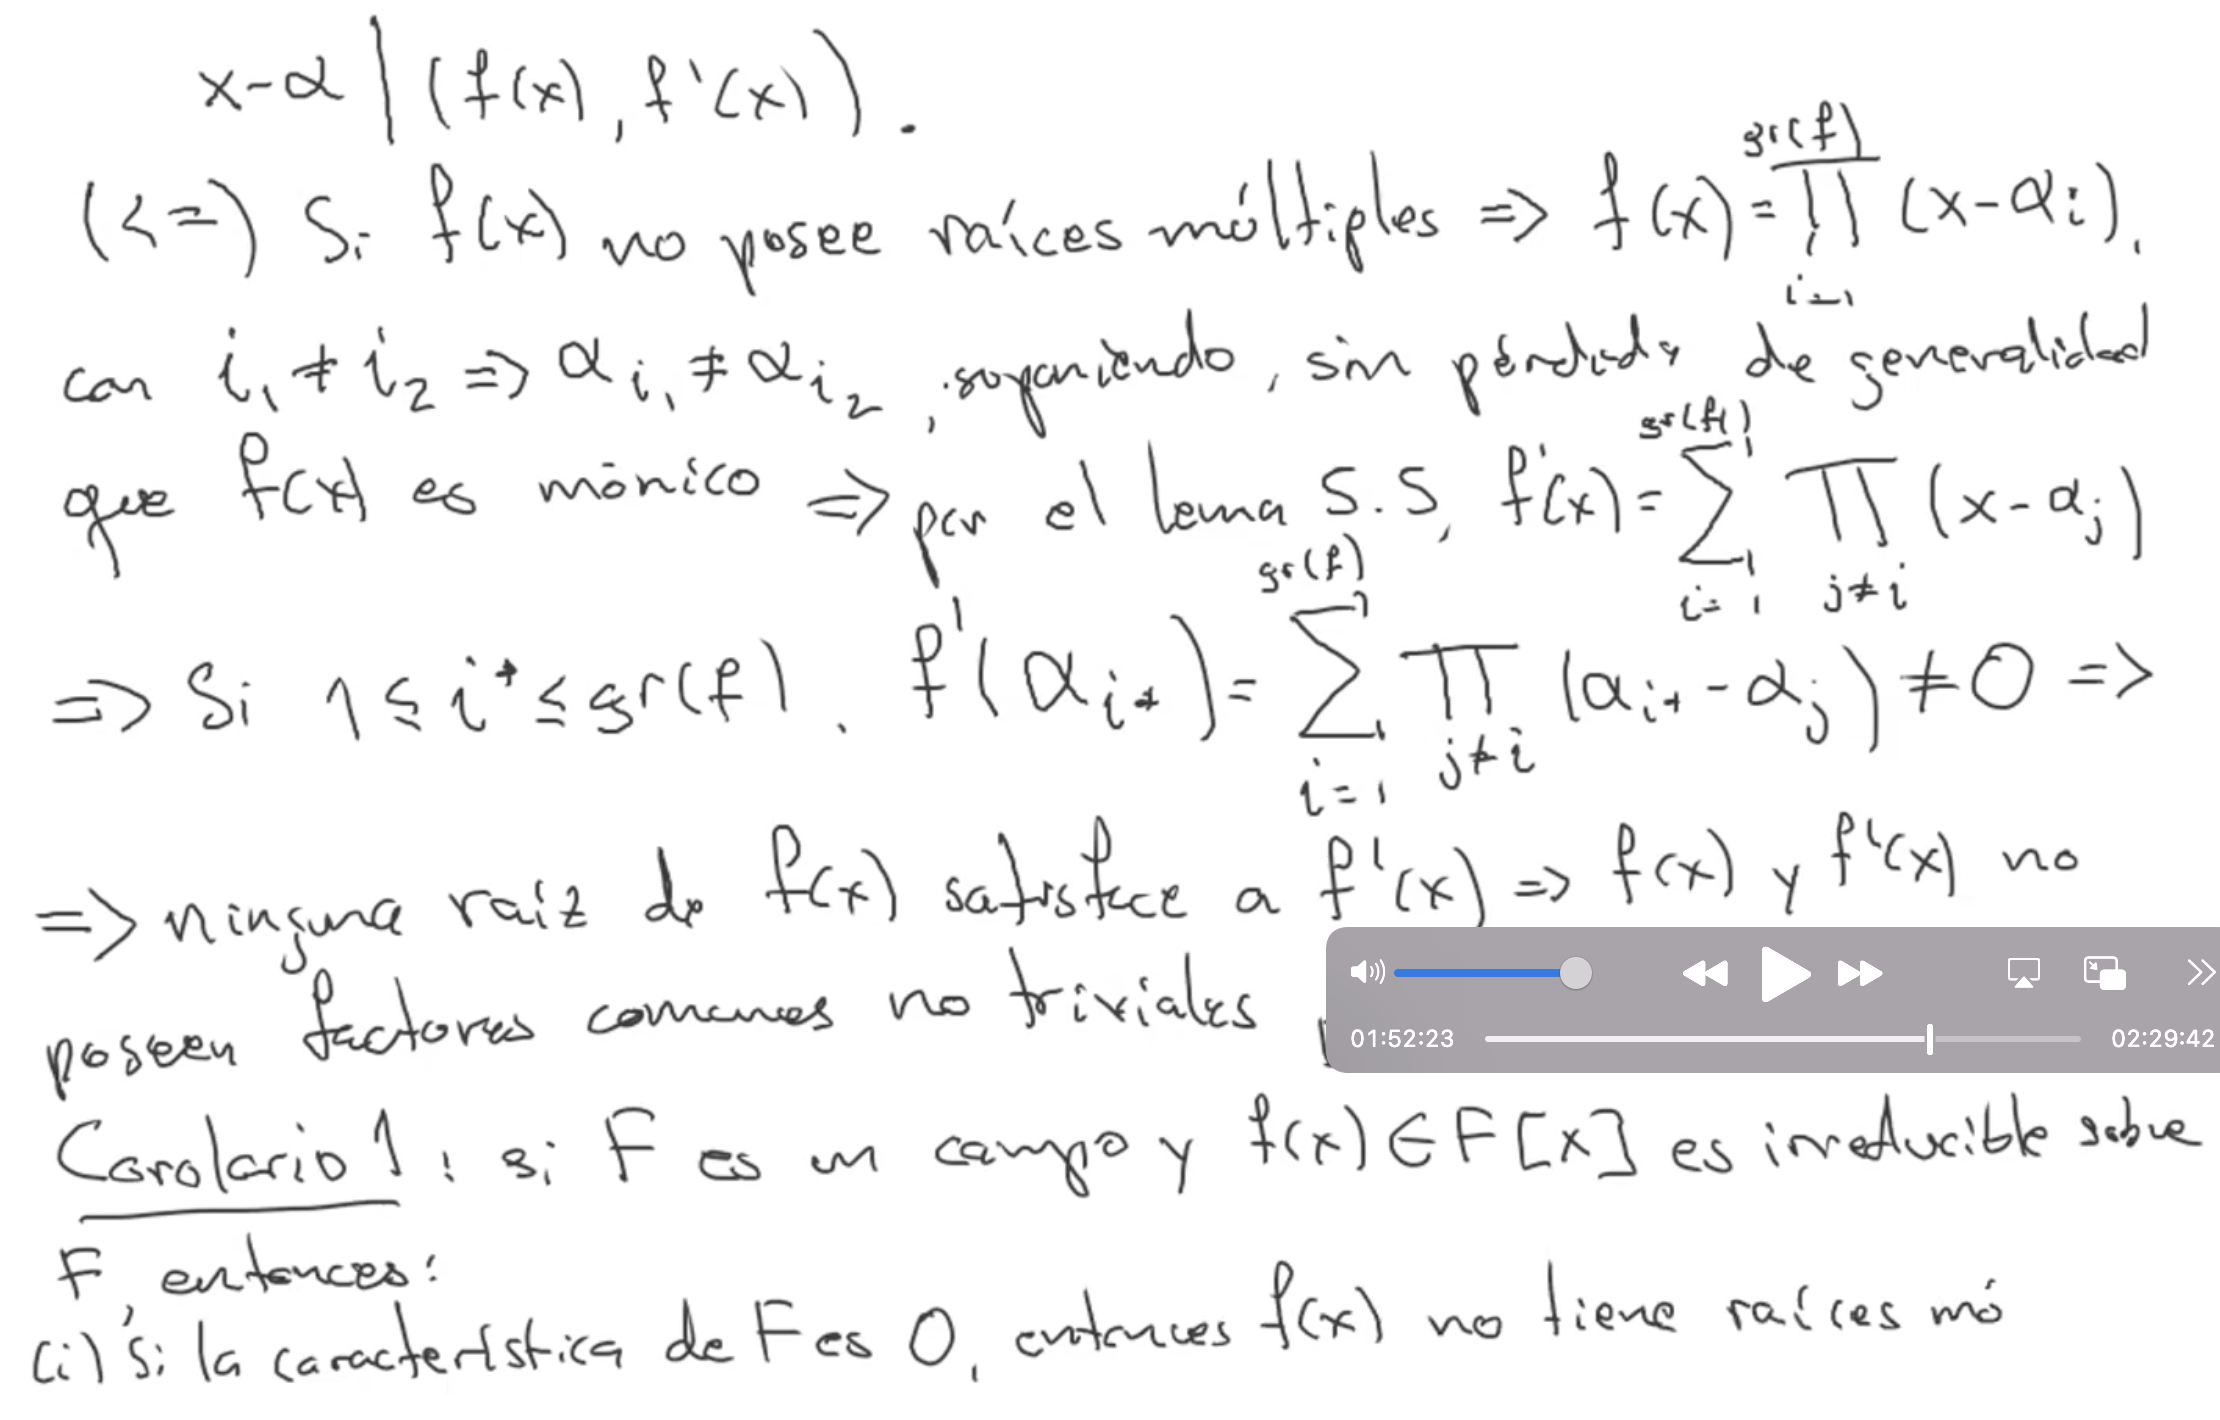 x-α | (f(x), f'(x)).
(<=) Si f(x) no posee raíces múltiples => f(x) = ∏_{i=1}^{gr(f)} (x-α_i),
con i_1 ≠ i_2 => α_{i_1} ≠ α_{i_2}, suponiendo, sin pérdida de generalidad
que f(x) es mónico => por el lema 5.5, f'(x) = ∑_{i=1}^{gr(f)} ∏_{j≠i} (x-α_j)
=> Si 1 ≤ i* ≤ gr(f), f'(α_{i*}) = ∑_{i=1}^{gr(f)} ∏_{j≠i} (α_{i*} - α_j) ≠ 0 =>
=> ninguna raíz de f(x) satisface a f'(x) => f(x) y f'(x) no
poseen factores comunes no triviales
01:52:23 02:29:42
Corolario 1: si F es un campo y f(x) ∈ F[x] es irreducible sobre
F, entonces:
(i) si la característica de F es 0, entonces f(x) no tiene raíces mó